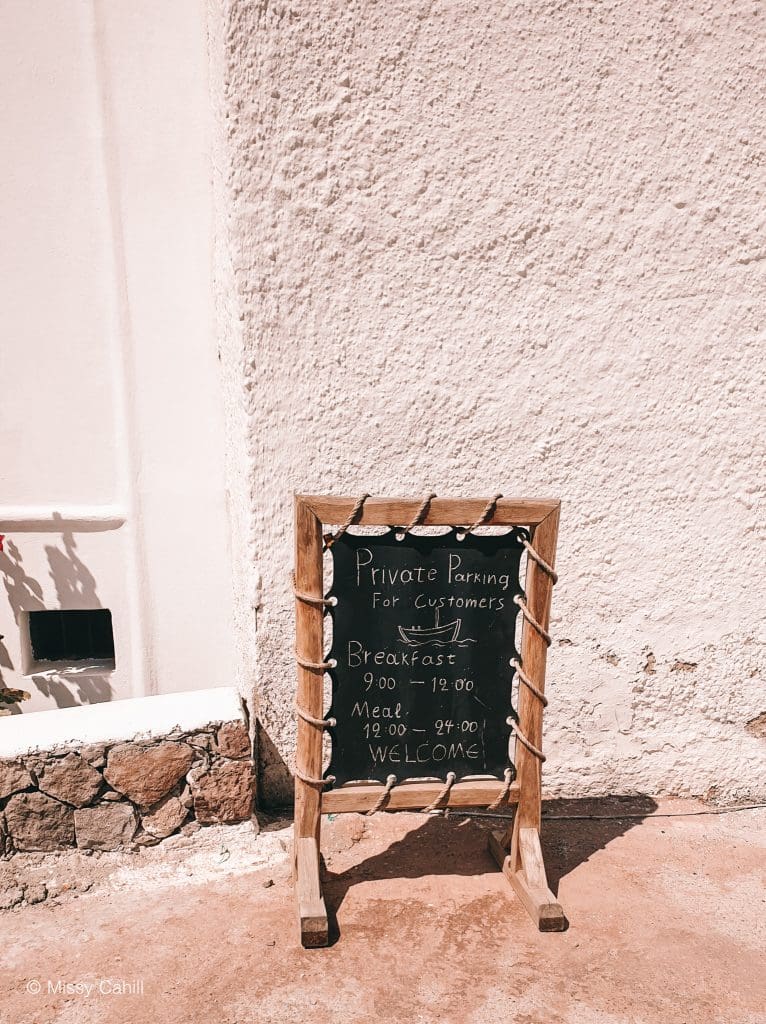 Private Parking
For Customers
Breakfast
9:00 – 12:00
Meal.
12:00 – 24:00
WELCOME
© Missy Cahill